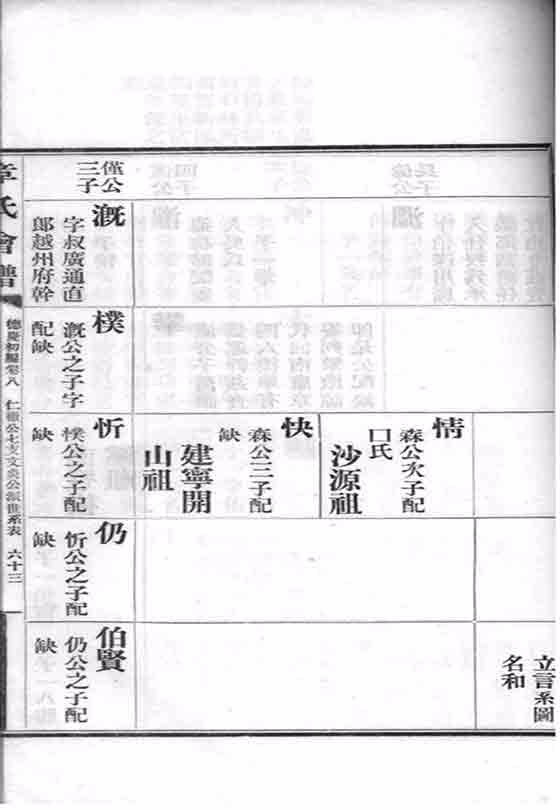 僅公
三子
溉
字叔廣通直
郎越州府幹
樸
溉公之子字
配缺
情
森公次子配
口氏
沙源祖
快
森公三子配
缺
建寧開
山祖
忻
樸公之子配
缺
仍
忻公之子配
缺
立言系圖
名和
伯賢
仍公之子配
缺
章氏會譜
德慶初編卷八
公七支文
公派世系表
六十三